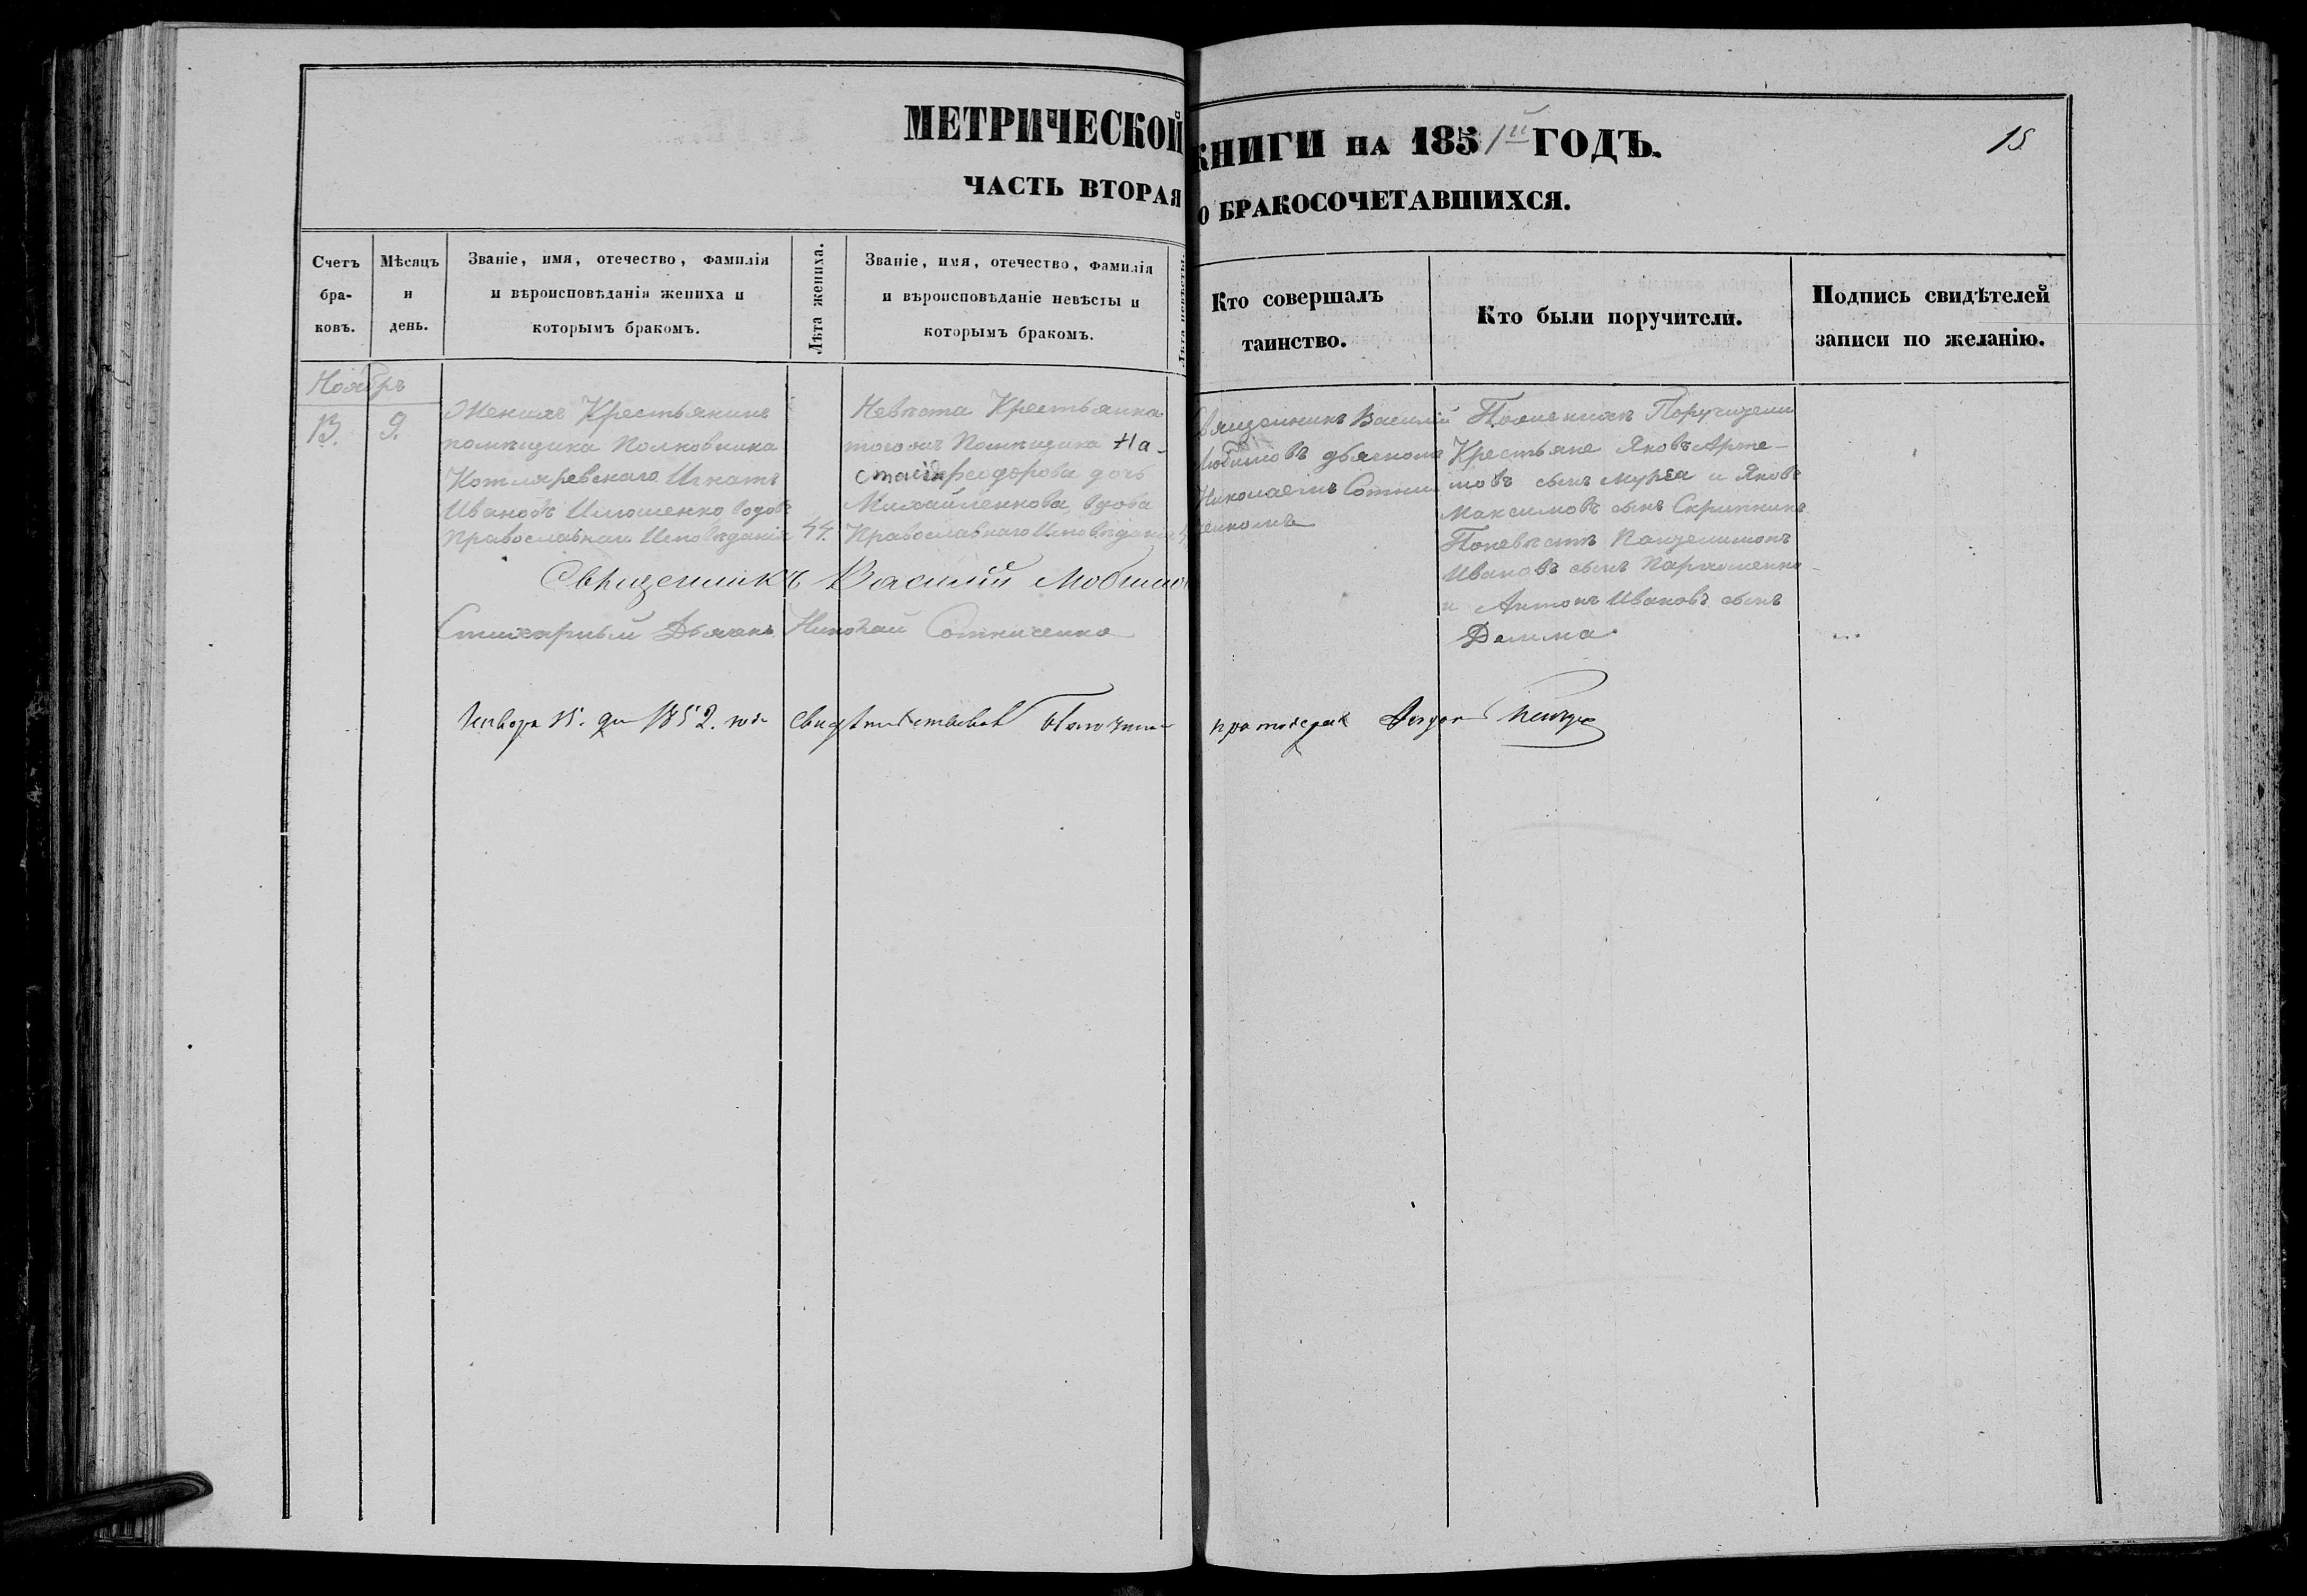 МЕТРИЧЕСКОЙ КНИГИ НА 1851й ГОДЪ.
15
ЧАСТЬ ВТОРАЯ О БРАКОСОЧЕТАВШИХСЯ.
Счетъ бра-ковъ.
Мѣсяцъ и день.
Званіе, имя, отечество, фамилія
и вѣроисповѣданія жениха и
которымъ бракомъ.
Лѣта жениха.
Званіе, имя, отечество, фамилія
и вѣроисповѣданіе невѣсты и
которымъ бракомъ.
Лѣта невѣсты.
Кто совершалъ
таинство.
Кто были поручители.
Подпись свидѣтелей
записи по желанію.
Ноябрь
13. 9.
Женихъ Крестьянинъ
помѣщика Полковника
Котляревскаго Игнатъ
Ивановъ Илюшенко вдовъ
Православнаи Исповѣданія
44.
Невѣста Крестьянка
тогожъ Помѣщика На-
стасія Феодорова дочь
Михайленкова, вдова
Православнаго Исповѣданія
Священникъ Василій
Любимовъ дьячкомъ
Николаемъ Сотни
ченкомъ
По женихѣ Поручители
Крестьяне Яковъ Арте-
мовъ сынъ Мурга и Яковъ
Максимовъ сынъ Скрипникъ
По невѣстѣ Пантелимонъ
Ивановъ сынъ Пархоменко
и Антонъ Ивановъ сынъ
Священникъ Василій Любимовъ
Стихарный Дьячекъ Николай Сотниченко
15. дня 1852. года свидѣтельствовалъ Благочинный протоіерей